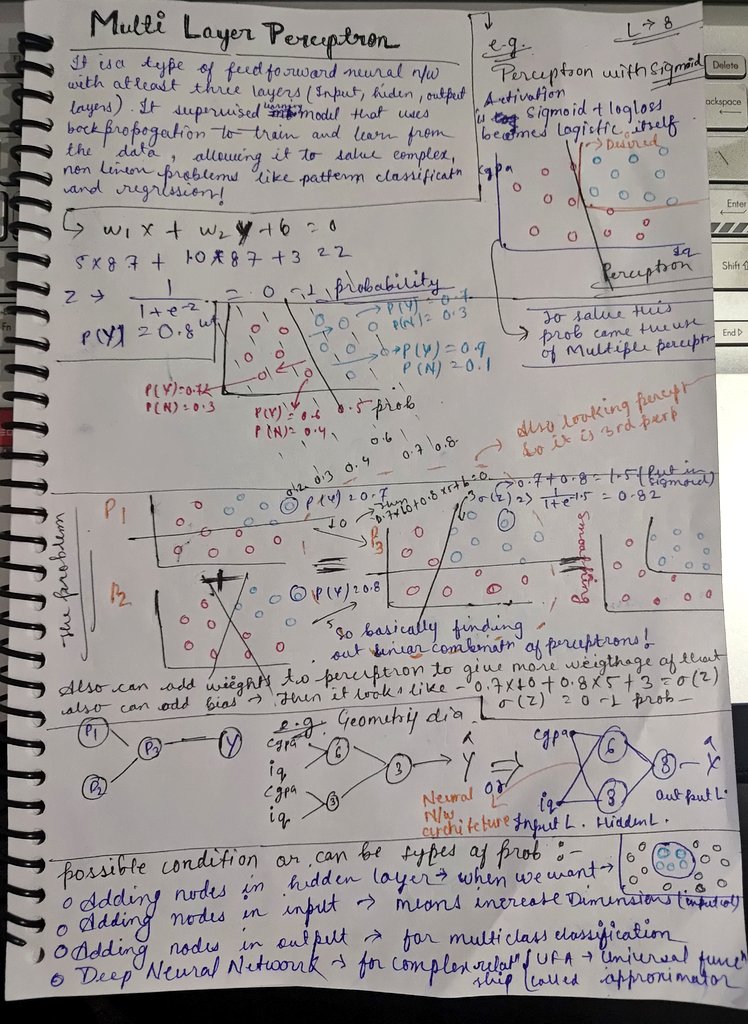 Multi Layer Perceptron
It is a type of feedforward neural n/w
with atleast three layers (Input, hiden, output
layers). It supervised model that uses
backpropogation to train and learn from
the data, allowing it to salue complex,
non linear problems like pattern classificatn
and regression!
L → 8
e.g.
Perceptron with Sigmoid
Activation
Sigmoid + logloss
becomes lagistic itself
Desired
cgpa
Iq
Perceptron
To salue this
prob came the use
of Multiple percept
w1 x + w2 y + b = 0
5 x 87 + 10 x 87 + 3 = 22
Z → 1 / 1 + e^-z = 0 - 1 probability
P(Y) = 0.8
P(Y) = 0.7
P(N) = 0.3
P(Y) = 0.9
P(N) = 0.1
P(N) = 0.3
P(Y) = 0.6
P(N) = 0.4
0.5 prob
0.3 0.4 0.6 0.7 0.8
Also looking percept
so it is 3rd perp
The problem
P1
P(Y) = 0.7
10
0.7x10 + 0.8x5 + b = 0
0.7 + 0.8 = 1.5 (Put in
sigmoid)
σ(z) => 1 / 1 + e^-1.5 = 0.82
P3
=
=
Smoothing
+
P2
P(Y) = 0.8
5
So basically finding
out linear combinatn of perceptrons!
Also can add weights to perceptron to give more weigthage of that
also can add bias → Then it looks like - 0.7x10 + 0.8x5 + 3 = σ(z)
σ(z) = 0 - 1 prob -
P1
P2
P3
Y
e.g. Geometric dia
cgpa
iq
cgpa
iq
6
3
3
Ŷ
or
Neural
N/w
architecture
cgpa
iq
6
3
8
Input L. Hidden L.
output L.
possible condition or can be types of prob :-
Adding nodes in hidden layer → when we want →
Adding nodes in input → means increase Dimensions (input col)
Adding nodes in output → for multiclass classification
Deep Neural Network → for complex relatn
ship
UFA → Universal functn
called approximator
Delete
ackspace
Enter
Shift
End
Fn